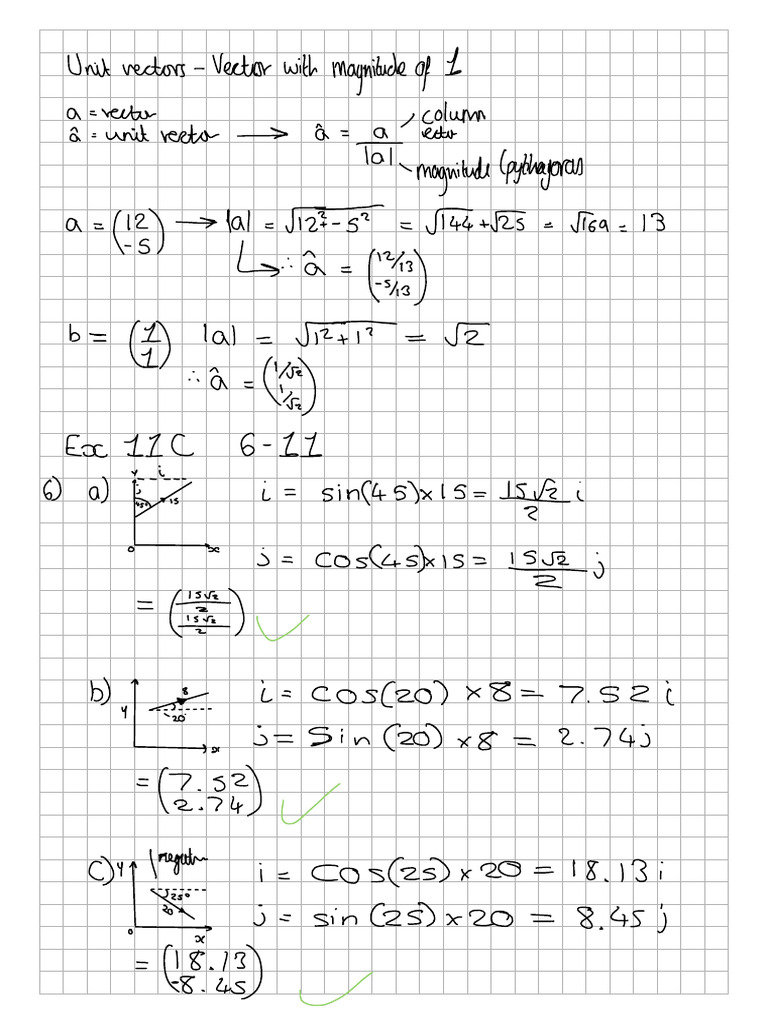 Unit vectors – Vector with magnitude of 1
a = vector
â = unit vector → â = a / |a| column vector
magnitude (pythagoras
a = (12 -5) → |a| = √12² - 5² = √144 + √25 = √169 = 13
∴ â = (12/13 -5/13)
b = (1 1) |a| = √1² + 1² = √2
∴ â = (1/√2 1/√2)
Ex 11C 6-11
6) a) y i j 45° 15 0 x
i = sin(45) × 15 = 15√2/2 i
j = cos(45) × 15 = 15√2/2 j
= (15√2/2 15√2/2) ✓
b) y 8 20° x
i = cos(20) × 8 = 7.52 i
j = Sin(20) × 8 = 2.74j
= (7.52 2.74) ✓
c) y 25° 20 0 x
i = cos(25) × 20 = 18.13 i
j = sin(25) × 20 = 8.45 j
= (18.13 -8.45) ✓